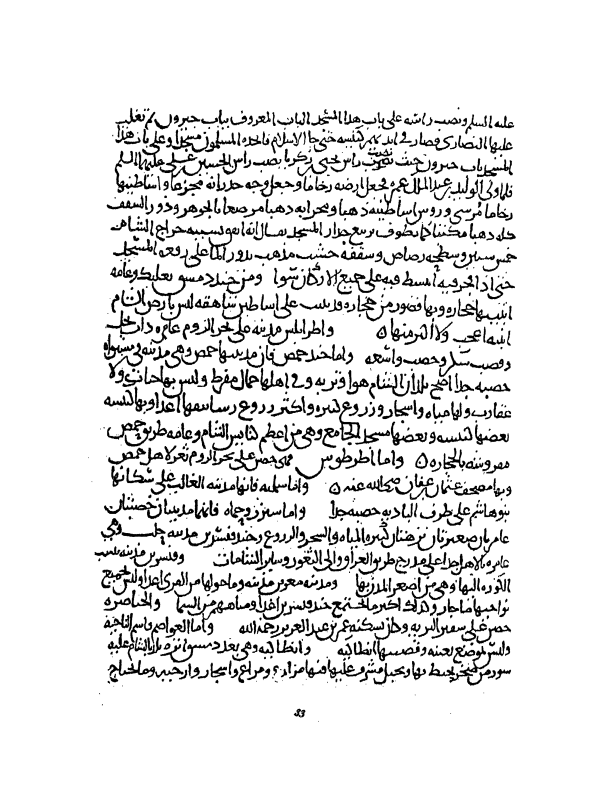 عليه السلم ونصب راسه على باب هذا المسجد الباب المعروف بباب جيرون ثم تغلب
عليها النصارى فصار في ايديهم كنيسه حتى جا الاسلام فاتخذه المسلمون مسجدا وعلى باب هذا
المسجد باب جيرون حيث نصب راس يحيى بن زكريا نصب راس الحسين بن على عليهما السلم
فلما ولى الوليد بن عبد الملك عمره فجعل ارضه رخاما وجعل وجه جدرانه مجزعا واساطينها
رخاما موشى وروس اساطينه ذهبا ومحرابه ذهبا مرصعا بالجوهر ودور السقف
كله ذهبا مكتبا كما يطوف بترابيع جدار المسجد يقال انه انفق فيه خراج الشام
خمس سنين وسطحه رصاص وسقفه خشب مذهب يدور الما على رقعه المسجد
حتى اذا فجر فيه انبسط فيه على جميع الاركان سوا ومن جند دمشق بعلبك وعامه
ابنيتها حجاره وبها قصور من حجاره قد بنيت على اساطين شاهقه ليس بارض الشام
ابنيه اعجب ولا اكبر منها واطرابلس مدينه على بحر الروم عامره ذات نخل
وقصب سكر وخصب واسعه واما جند حمص فان مدينتها حمص وهى مدينه في مستواه
خصبه جدا اصح بلدان الشام هوا وتربه وفى اهلها جمال مفرط وليس بها حيات ولا
عقارب ولها مياه واشجار وزروع كثيره واكثر زروع رساتيقها اعذا وبها كنيسه
بعضها كنيسه وبعضها مسجد الجامع وهى من اعظم كنايس الشام وعامه طريق حمص
مفروشه بالحجاره واما انطرطوس فهى حصن على بحر الروم ثغر لاهل حمص
وبها مصحف عثمان بن عفان رضى الله عنه واما سلميه فانها مدينه الغالب على سكانها
بنو هاشم على طرف الباديه خصبه جدا واما شيزر وحماه فانهما مدينتان خصبتان
عامرتان صغيرتان نزهتان كثيره المياه والشجر والزروع وجند قنسرين مدينته حلب وهى
عامره بالاهل جدا على مدرج طريق العراق والى الثغور وساير الشامات وقنسرين مدينه تنسب
الكوره اليها وهى من اصغر المدن بها ومدينه معره بن مدينه وما حولها من القرى اعذا وليس بجميع
نواحيها ما جار وكذلك اكثر ما يجتمع جند قنسرين اعذا ومياههم من السما والخناصره
حصن على شفير البريه وكان سكنه عمر بن عبد العزيز رحمه الله واما العواصم فاسم الناحيه
وليس موضع بعينه وقصبتها انطاكيه وانطاكيه وهى بعد دمشق انزه بلد بالشام عليه
سور من صخر يحيط بها وبجبل مشرف عليها فيها مزارع ومراع واشجار وارحيه وما يحتاج
33